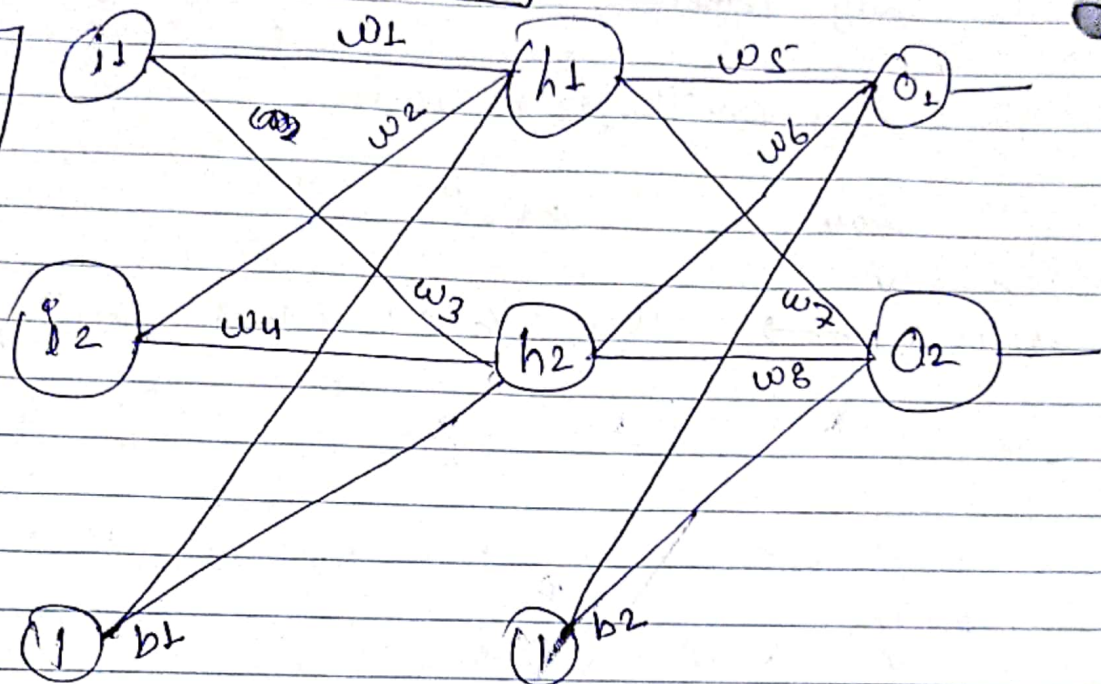 i1 w1 h1 w5 o1
w2 w6
i2 w4 w3 h2 w7 w8 O2
1 b1 1 b2